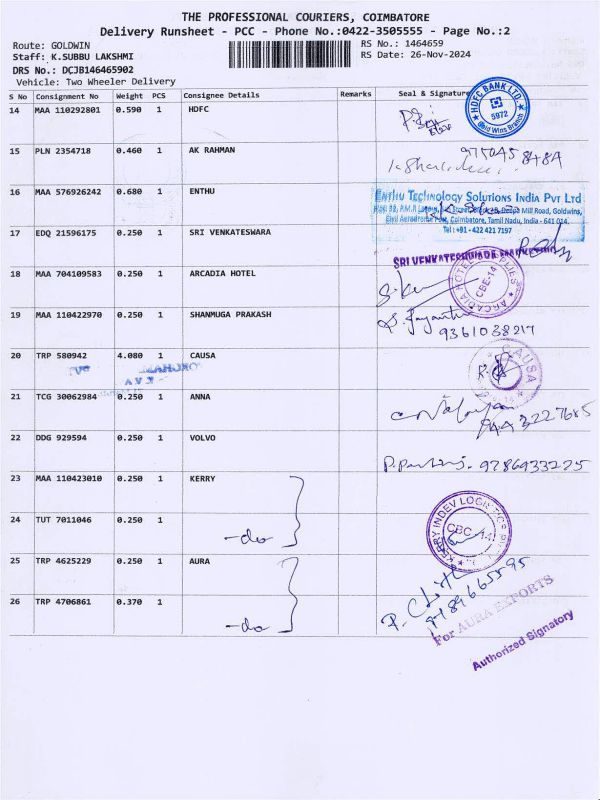 THE PROFESSIONAL COURIERS, COIMBATORE
Delivery Runsheet - PCC - Phone No.:0422-3505555 - Page No.:2
Route: GOLDWIN
RS No.: 1464659
Staff: K.SUBBU LAKSHMI
RS Date: 26-Nov-2024
DRS No.: DCJB146465902
Vehicle: Two Wheeler Delivery
S No Consignment No Weight PCS Consignee Details Remarks Seal & Signature
14 MAA 110292801 0.590 1 HDFC
HDFC BANK LTD
5972
Gold Wins Branch
15 PLN 2354718 0.460 1 AK RAHMAN
16 MAA 576926242 0.680 1 ENTHU
ENTHU TECHNOLOGY SOLUTIONS INDIA PVT LTD
Mill Road, Goldwins,
Civil Aerodrome Post, Coimbatore, Tamil Nadu, India - 641 014.
Tel : +91 - 422 421 7197
17 EDQ 21596175 0.250 1 SRI VENKATESWARA
18 MAA 704109583 0.250 1 ARCADIA HOTEL
ARCADIA HOTEL
CBE-14
19 MAA 110422970 0.250 1 SHANMUGA PRAKASH
9361038217
20 TRP 580942 4.080 1 CAUSA
CAUSA
21 TCG 30062984 0.250 1 ANNA
22 DDG 929594 0.250 1 VOLVO
9786933225
23 MAA 110423010 0.250 1 KERRY
KERRY INDEV LOGISTICS
24 TUT 7011046 0.250 1
-do
25 TRP 4625229 0.250 1 AURA
26 TRP 4706861 0.370 1
-do
For AURA EXPORTS
Authorized Signatory